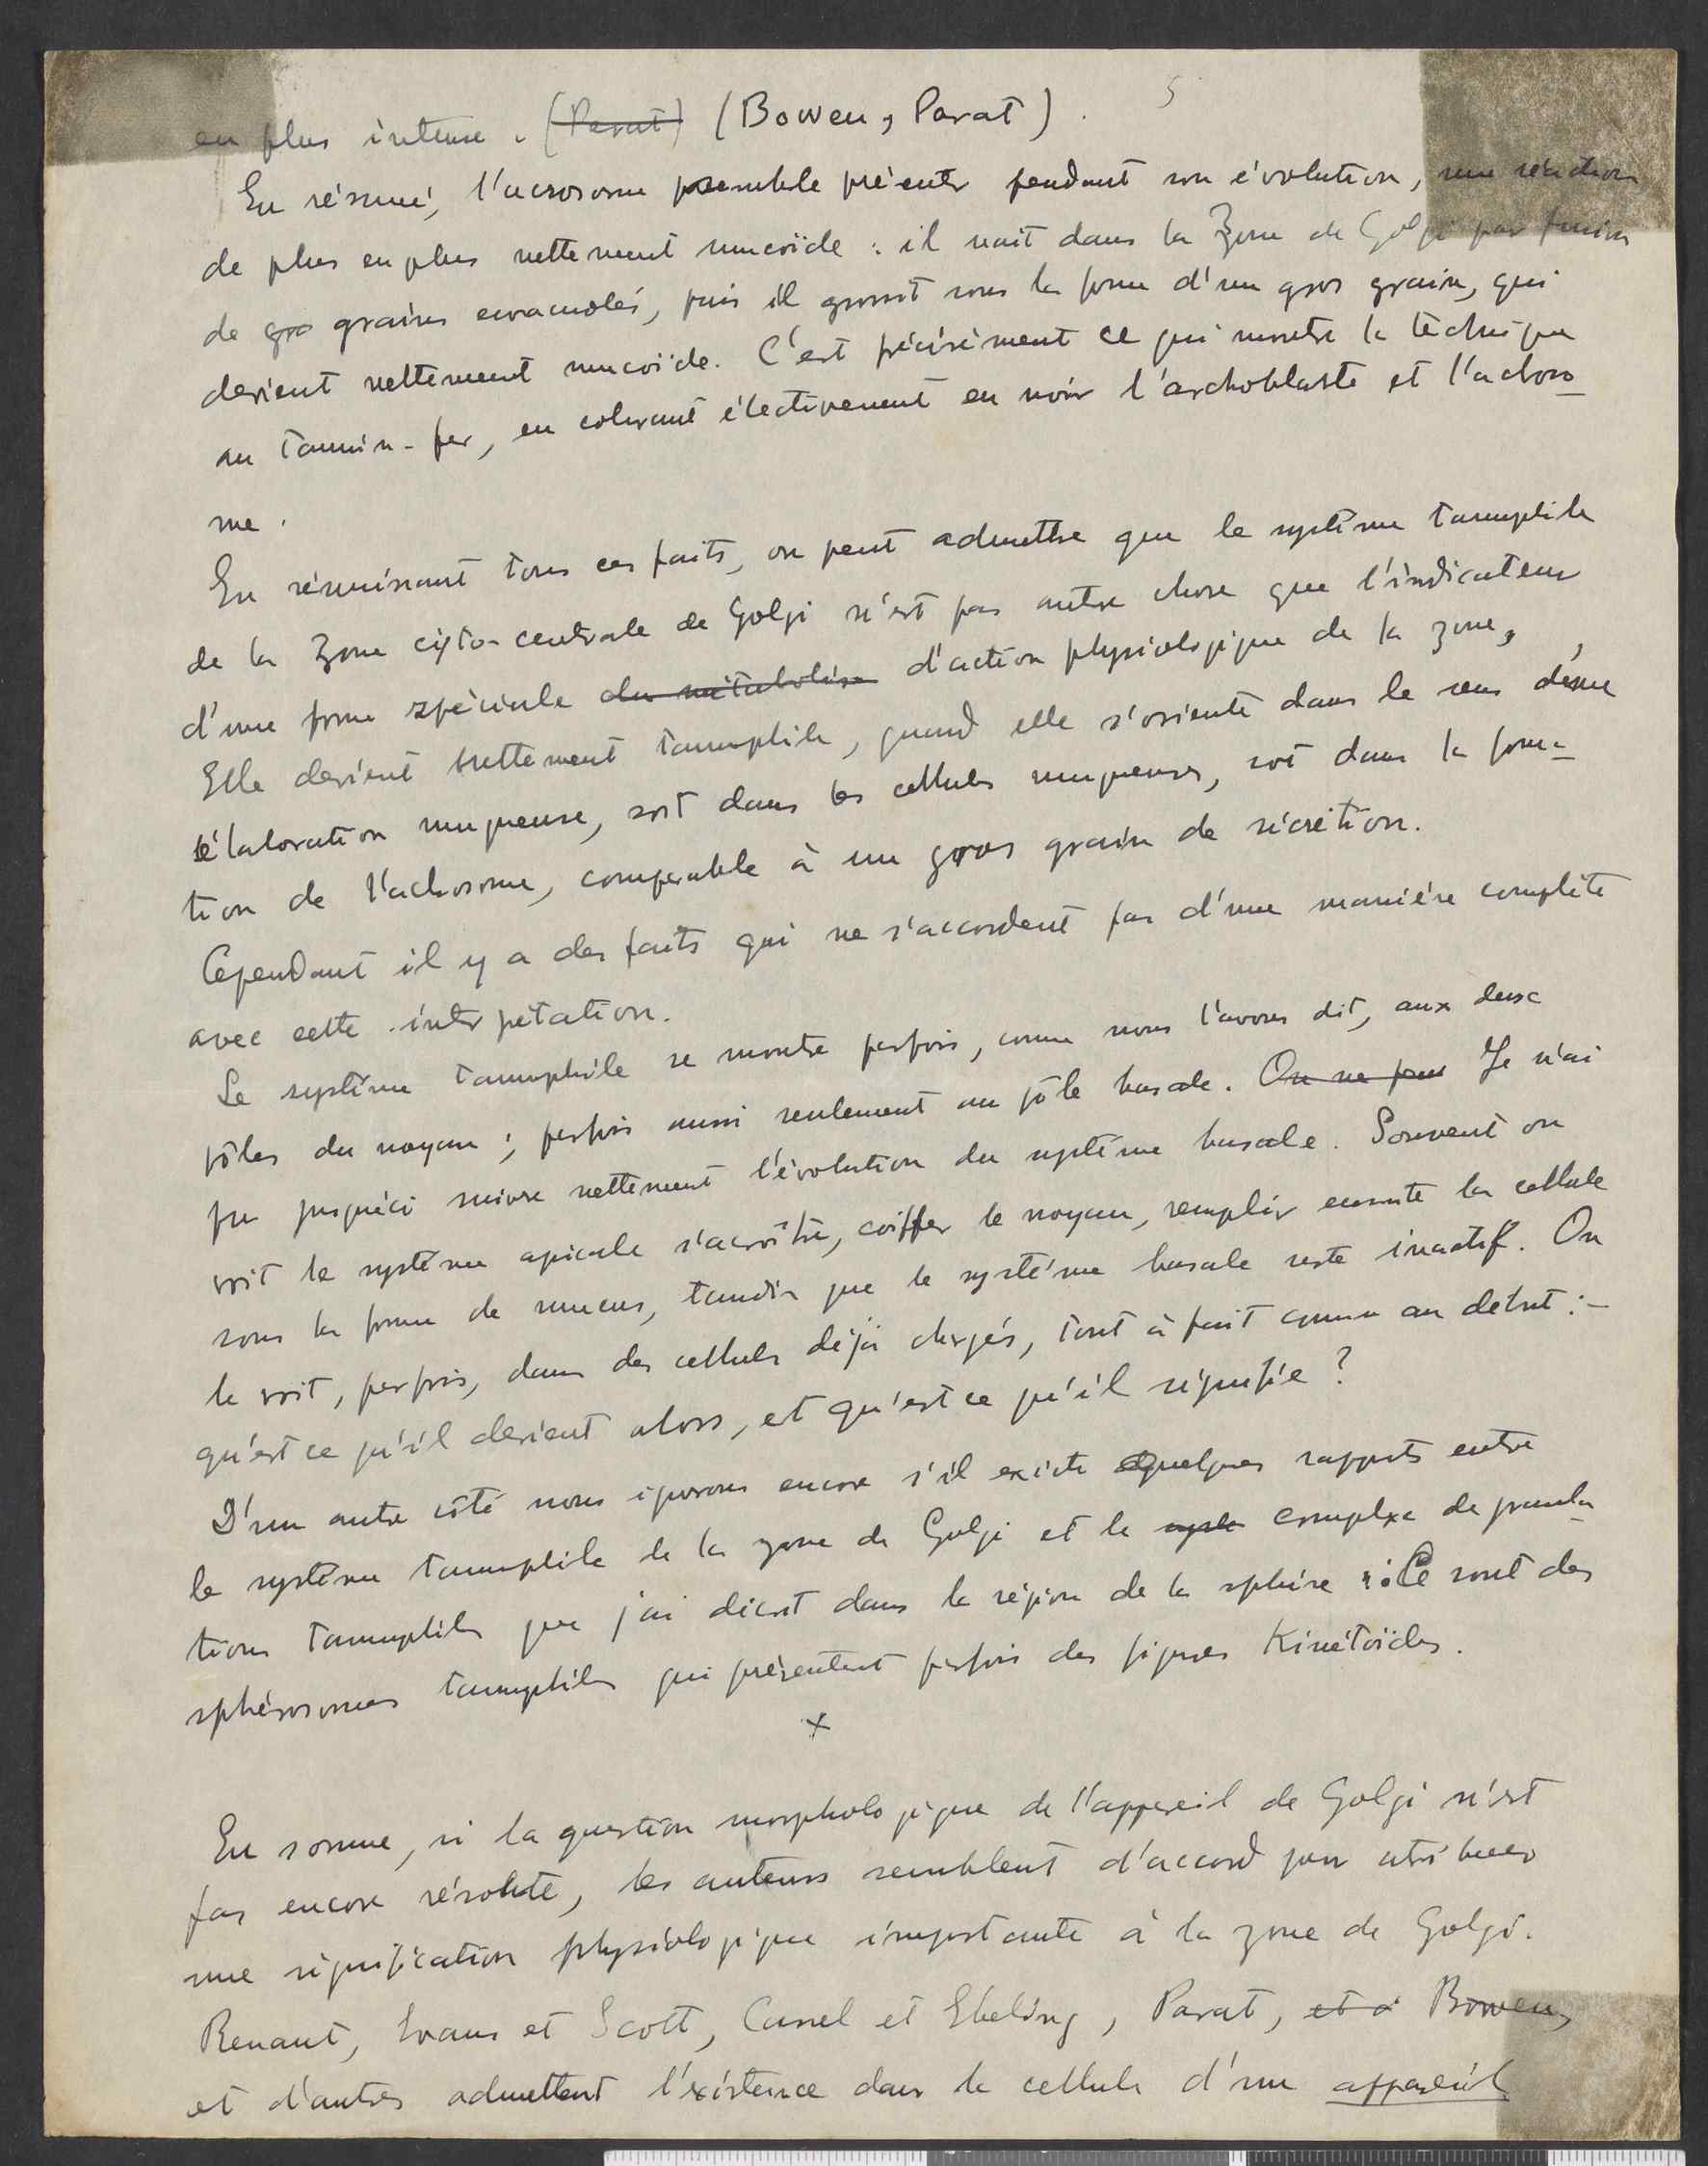 5
en plus intense. (Parat) (Bowen, Parat).
En résumé, l'acrosome semble présenter pendant son évolution, une réaction
de plus en plus nettement mucoïde : il nait dans la Zone de Golgi par fusion
de gro grains envacuolés, puis il grossit sous la forme d'un gros grain, qui
devient nettement mucoïde. C'est précisément ce qui montre la technique
au Tannin-fer, en colorant électivement en noir l'archoblaste et l'achoso-
me.
En réunissant tous ces faits, on peut admettre que le système tannophile
de la Zone cyto-centrale de Golgi n'est pas autre chose que l'indicateur
d'une forme spéciale du métabolism d'action physiologique de la zone,
Elle devient nettement tannophile, quand elle s'oriente dans le sens d'une
élaboration muqueuse, soit dans les cellules muqueuses, soit dans la forma-
tion de l'achosome, comparable à un gros grain de sécrétion.
Cependant il y a des faits qui ne s'accordent pas d'une manière complète
avec cette interpétation.
Le système tannophile se montre parfois, comme nous l'avons dit, aux deux
pôles du noyau ; parfois aussi seulement au pôle basale. On ne peut Je n'ai
pu jusqu'ici suivre nettement l'évolution du système basale. Souvent on
voit le système apicale s'acroître, coiffer le noyau, remplir ensuite la cellule
sous la forme de mucus, tandis que le système basale reste inactif. On
le voit, parfois, dans des cellules déjà chargés, tout à fait comme au debut :-
qu'est ce qu'il devient alors, et qu'est ce qu'il signifie ?
D'un autre côté nous ignorons encore s'il existe quelques rapports entre
le système tannophile de la zone de Golgi et le syste complexe de granula-
tions tannophiles que j'ai décrit dans la région de la sphère : Ce sont des
sphérosomes tannophiles qui présentent parfois des figures Kinétoïdes.
x
En somme, si la question morphologique de l'appareil de Golgi n'est
pas encore résolute, les auteurs semblent d'accord pour atribuer
une signification physiologique importante à la zone de Golgi.
Renaut, Evans et Scott, Carrel et Ebeling, Parat, et a Bowen,
et d'autres admettent l'existence dans la cellule d'un appareil